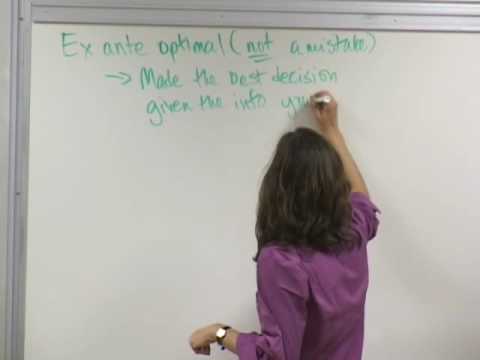 Ex ante optimal (not a mistake)
→ Made the best decision
given the info you